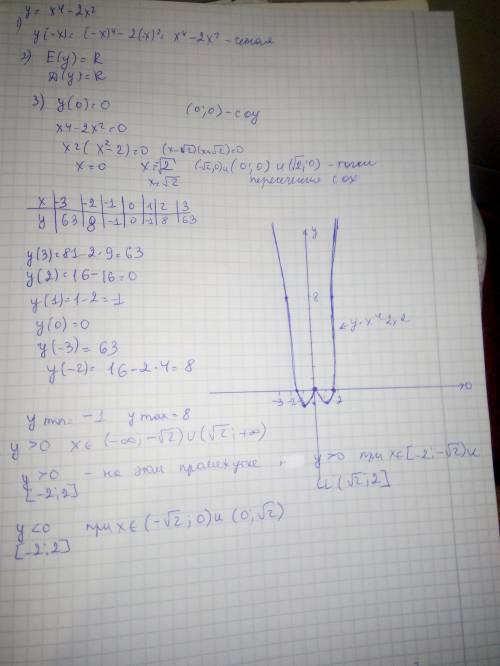 y = x⁴ - 2x²
1) y(-x) = (-x)⁴ - 2(x)² = x⁴ - 2x² - четная
2) E(y) = R
D(y) = R
3) y(0) = 0 (0;0) - с oy
x⁴ - 2x² = 0
x²(x² - 2) = 0 (x-√2)(x+√2)=0
x = 0 x = √2 (-√2;0) и (0;0) и (√2;0) - точки
x = √2 пересечения с ox
x -3 -2 -1 0 1 2 3
y 63 8 -1 0 -1 8 63
y(3) = 81 - 2·9 = 63
y(2) = 16 - 16 = 0
y(1) = 1 - 2 = -1
y(0) = 0
y(-3) = 63
y(-2) = 16 - 2·4 = 8
y
8
y = x⁴ - 2x²
-3 -2 -1 1 2
y min = -1 y max = 8
y > 0 x ∈ (-∞; -√2) ∪ (√2; +∞)
y > 0 - на этом промежутке y > 0 при x ∈ [-2; -√2) и
[-2; 2] и (√2; 2]
y < 0 при x ∈ (-√2; 0) и (0; √2)
[-2; 2]